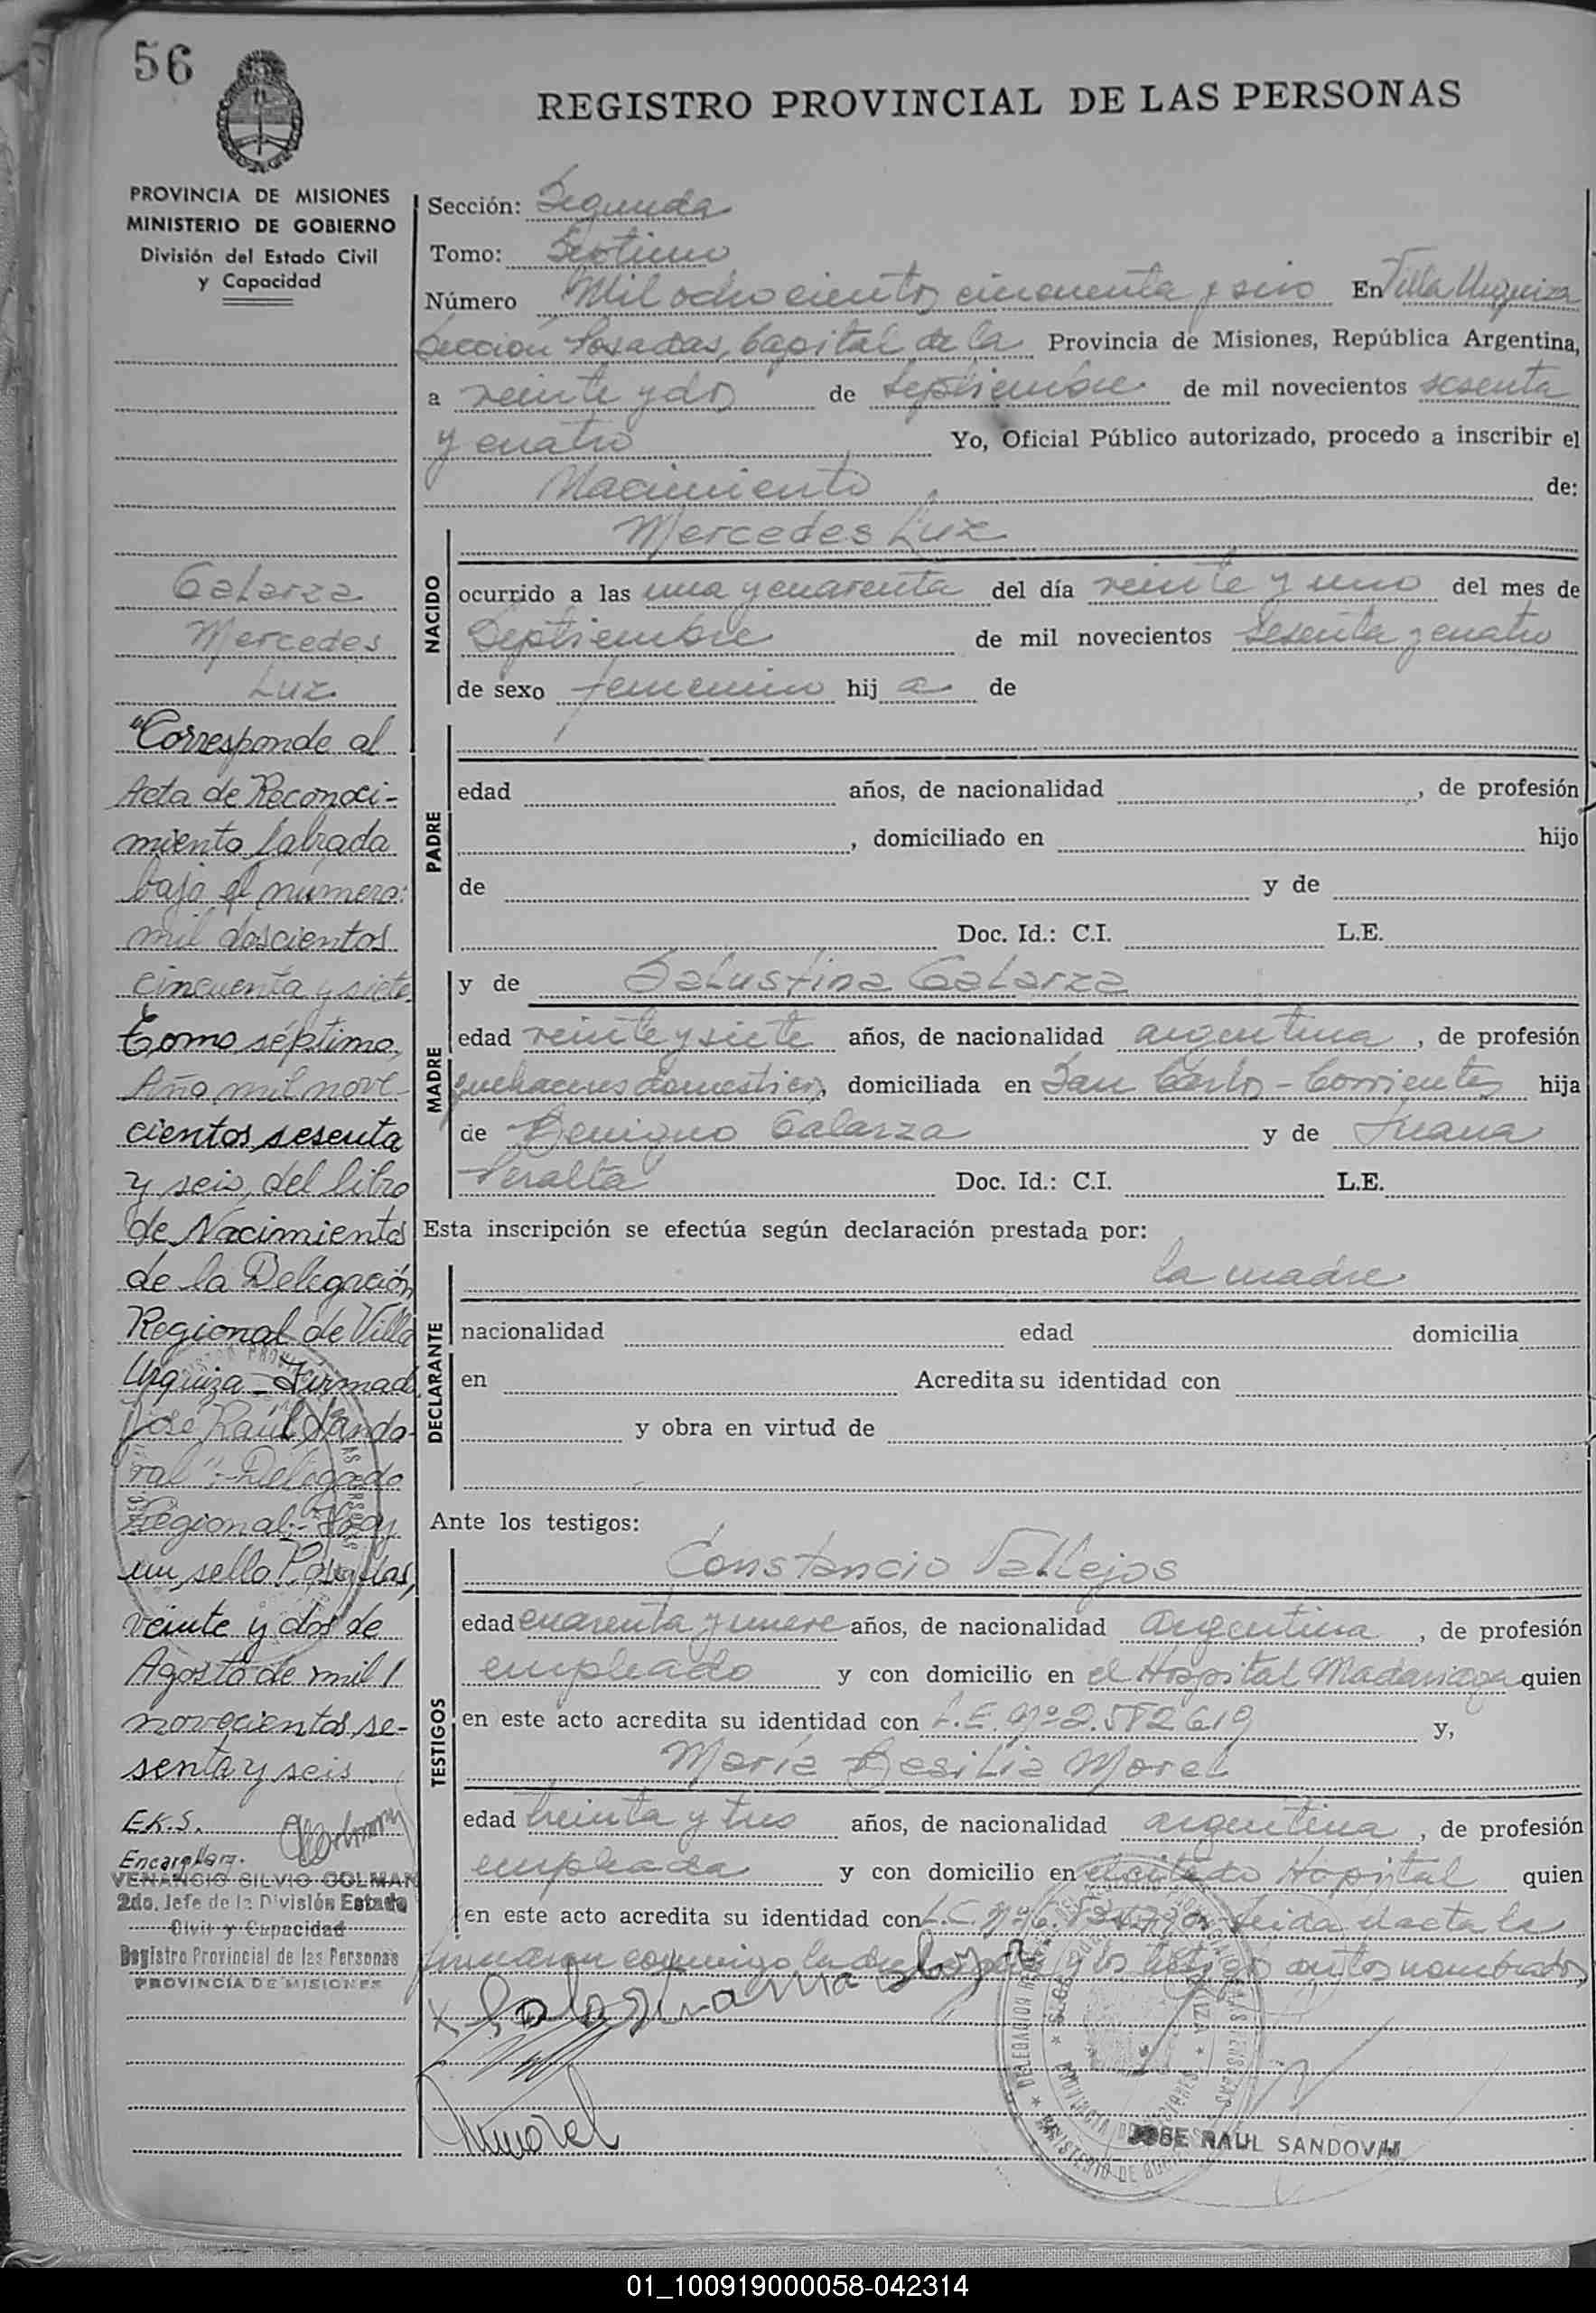 56
REGISTRO PROVINCIAL DE LAS PERSONAS
PROVINCIA DE MISIONES
MINISTERIO DE GOBIERNO
División del Estado Civil
y Capacidad
Sección: Segunda
Tomo: Septimo
Número Mil ochocientos cincuenta y seis En Villa Urquiza
Sección Posadas, Capital de la Provincia de Misiones, República Argentina,
a veinte y dos de Septiembre de mil novecientos sesenta
y cuatro Yo, Oficial Público autorizado, procedo a inscribir el
Nacimiento de:
NACIDO
Mercedes Luz
ocurrido a las una y cuarenta del día veinte y uno del mes de
Septiembre de mil novecientos sesenta y cuatro
de sexo femenino hij a de
PADRE
edad años, de nacionalidad , de profesión
, domiciliado en hijo
de y de
Doc. Id.: C.I. L.E.
MADRE
y de Salustina Galarza
edad veinte y siete años, de nacionalidad argentina , de profesión
quehaceres domesticos, domiciliada en San Carlos - Corrientes hija
de Benigno Galarza y de Juana
Peralta Doc. Id.: C.I. L.E.
Esta inscripción se efectúa según declaración prestada por:
DECLARANTE
la madre
nacionalidad edad domicilia
en Acredita su identidad con
y obra en virtud de
Ante los testigos:
TESTIGOS
Constancio Vallejos
edad cuarenta y nueve años, de nacionalidad argentina , de profesión
empleado y con domicilio en el Hospital Madariaga quien
en este acto acredita su identidad con L.E. nº 2.582619 y,
María Basilia Morel
edad treinta y tres años, de nacionalidad argentina , de profesión
empleada y con domicilio en el citado Hospital quien
en este acto acredita su identidad con L.C. nº leida el acta la
firmaron conmigo y los testigos antes nombrados
Morel
JOSE RAUL SANDOVAL
Galarza
Mercedes
Luz
"Corresponde al
Acta de Reconoci-
miento labrada
bajo el número:
mil doscientos
cincuenta y siete
Tomo séptimo,
Año mil nove-
cientos sesenta
y seis, del libro
de Nacimientos
de la Delegación
Regional de Villa
Urquiza - Firmado
José Raúl Sando-
val".- Delegado
Regional.- Hay
un sello. Posadas,
veinte y dos de
Agosto de mil
novecientos se-
senta y seis
E.K.S.
VENANCIO SILVIO COLMAN
2do. Jefe de la División Estado
Civil y Capacidad
Registro Provincial de las Personas
PROVINCIA DE MISIONES
01_100919000058-042314